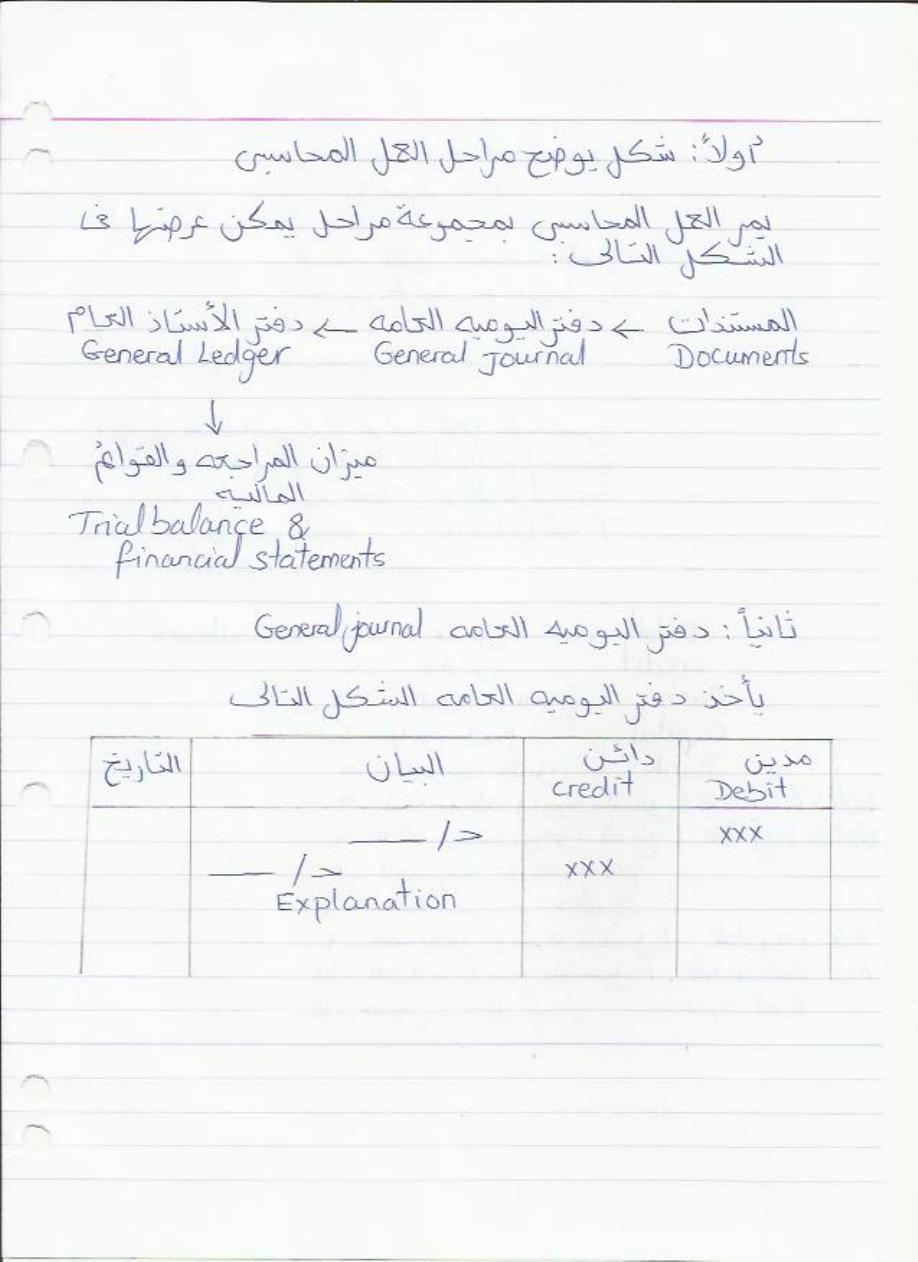 أولاً: شكل يوضح مراحل العمل المحاسبى
يمر العمل المحاسبى بمجموعة مراحل يمكن عرضها فى
الشكل التالى:
المستندات ← دفتر اليوميه العامه ← دفتر الأستاذ العام
Documents General Journal General Ledger
↓
ميزان المراجعه والقوائم
الماليه
Trial balance &
financial statements
ثانياً: دفتر اليوميه العامه General journal
يأخذ دفتر اليوميه العامه الشكل التالى
مدين دائن البيان التاريخ
Debit credit
xxx حـ/ ___
xxx حـ/ ___
Explanation